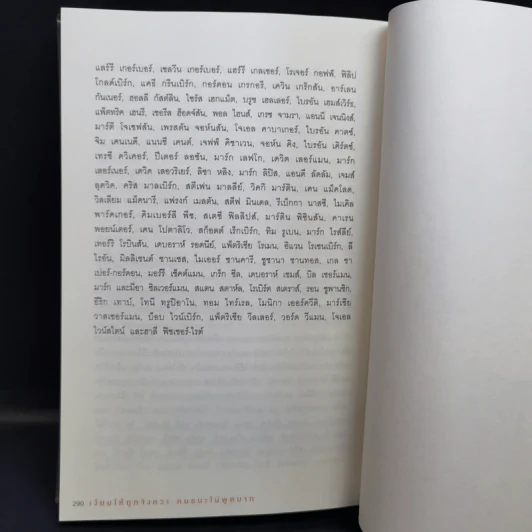 แลร์รี เกอร์เบอร์, เชลวีน เกอร์เบอร์, แฮร์รี เกลเซอร์, โรเจอร์ กอฟฟ์, ฟิลิป
โกลด์เบิร์ก, แครี กรีนเบิร์ก, กอร์ดอน เกรกอรี, เควิน เกร็กสัน, อาร์เลน
กันเนอร์, ฮอลลี กัสต์สัน, ไซรัส เฮกแม็ต, บรูซ เฮลเลอร์, ไบรอัน เฮมส์เวิร์ธ,
แพ็ตทริค เฮนรี, เชอรีส ฮ็อดจ์สัน, พอล โฮนส์, เกรซ จามรา, แอนนี เจนนิงส์,
มาร์ตี โจเซฟสัน, เพรสตัน จอห์นสัน, โจเอล คาบาเกอร์, ไบรอัน คาตซ์,
จิม เคนเนดี, แนนซี เคนต์, เจฟฟ์ คิชาเวน, จอห์น คิง, ไบรอัน เคิร์ตซ์,
เทรซี ควีเคอร์, ปีเตอร์ ลอซัน, มาร์ก เลฟโก, เดวิด เลอร์แมน, มาร์ก
เลอร์เนอร์, เดวิด เลอวริเยร์, ลิซา หลิง, มาร์ก ลิปิส, แอนดี ลัดลัม, เจมส์
ลุดวิค, คริส มาลเบิร์ก, สตีเฟน มาลลีย์, วิคกิ มาร์ติน, เคน แม็คโลด,
วิลเลียม แม็คนารี, แฟรงก์ เมลตัน, สตีฟ มินเดล, รีเบ็กกา นาสซี, ไมเคิล
พาร์คเกอร์, คิมเบอร์ลี พีช, สเตซี ฟิลลิปส์, มาร์ติน พิชินสัน, คาเรน
พอยน์เตอร์, เคน โปตาลิโว, สก็อตต์ เร็กเบิร์ก, ทิม รูเบน, มาร์ก ไรส์ลีย์,
เทอร์รี โรบินสัน, เดบอราห์ รอดนีย์, แพ็ตริเซีย โรเมน, อีแวน โรเซนเบิร์ก, ลี
ไรอัน, มิลลิเซนต์ ซานเซส, ไมเออร์ ซานคารี, ซูซานา ซานทอส, เกล ซา
เปอร์-กอร์ดอน, มอร์รี เซ็คต์แมน, เกร็ก ซีล, เดบอราห์ เชมส์, บิล เชอร์แมน,
มาร์ก และมียา ซิลเวอร์แมน, สแตน สตาห์ล, โรเบิร์ต สเตราส์, รอน ซูพานซิก,
อีริก เทาบ์, โทนี ทรูปิอาโน, ทอม ไทร์เรล, โมนิกา เออร์ควิดี, มาร์เซีย
วาสเซอร์แมน, บ็อบ ไวน์เบิร์ก, แพ็ตริเซีย วีลเลอร์, วอร์ด วีแมน, โจเอล
ไวน์สไตน์ และฮาลี ฟิชเชอร์-ไรต์
290 เงียบให้ถูกจังหวะ คนชนะไม่พูดมาก